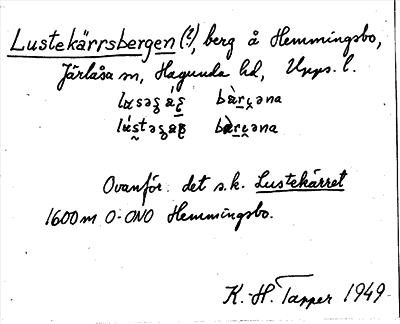 Lustekärrsbergen (?), berg å Hemmingsbo,
Järlåsa sn, Hagunda hd, Upps. l.
bàr̲ɡəna
bàr̲ɡəna
Ovanför det s.k. Lustekärret
1600 m O-ONO Hemmingsbo.
K.-H. Tapper 1949